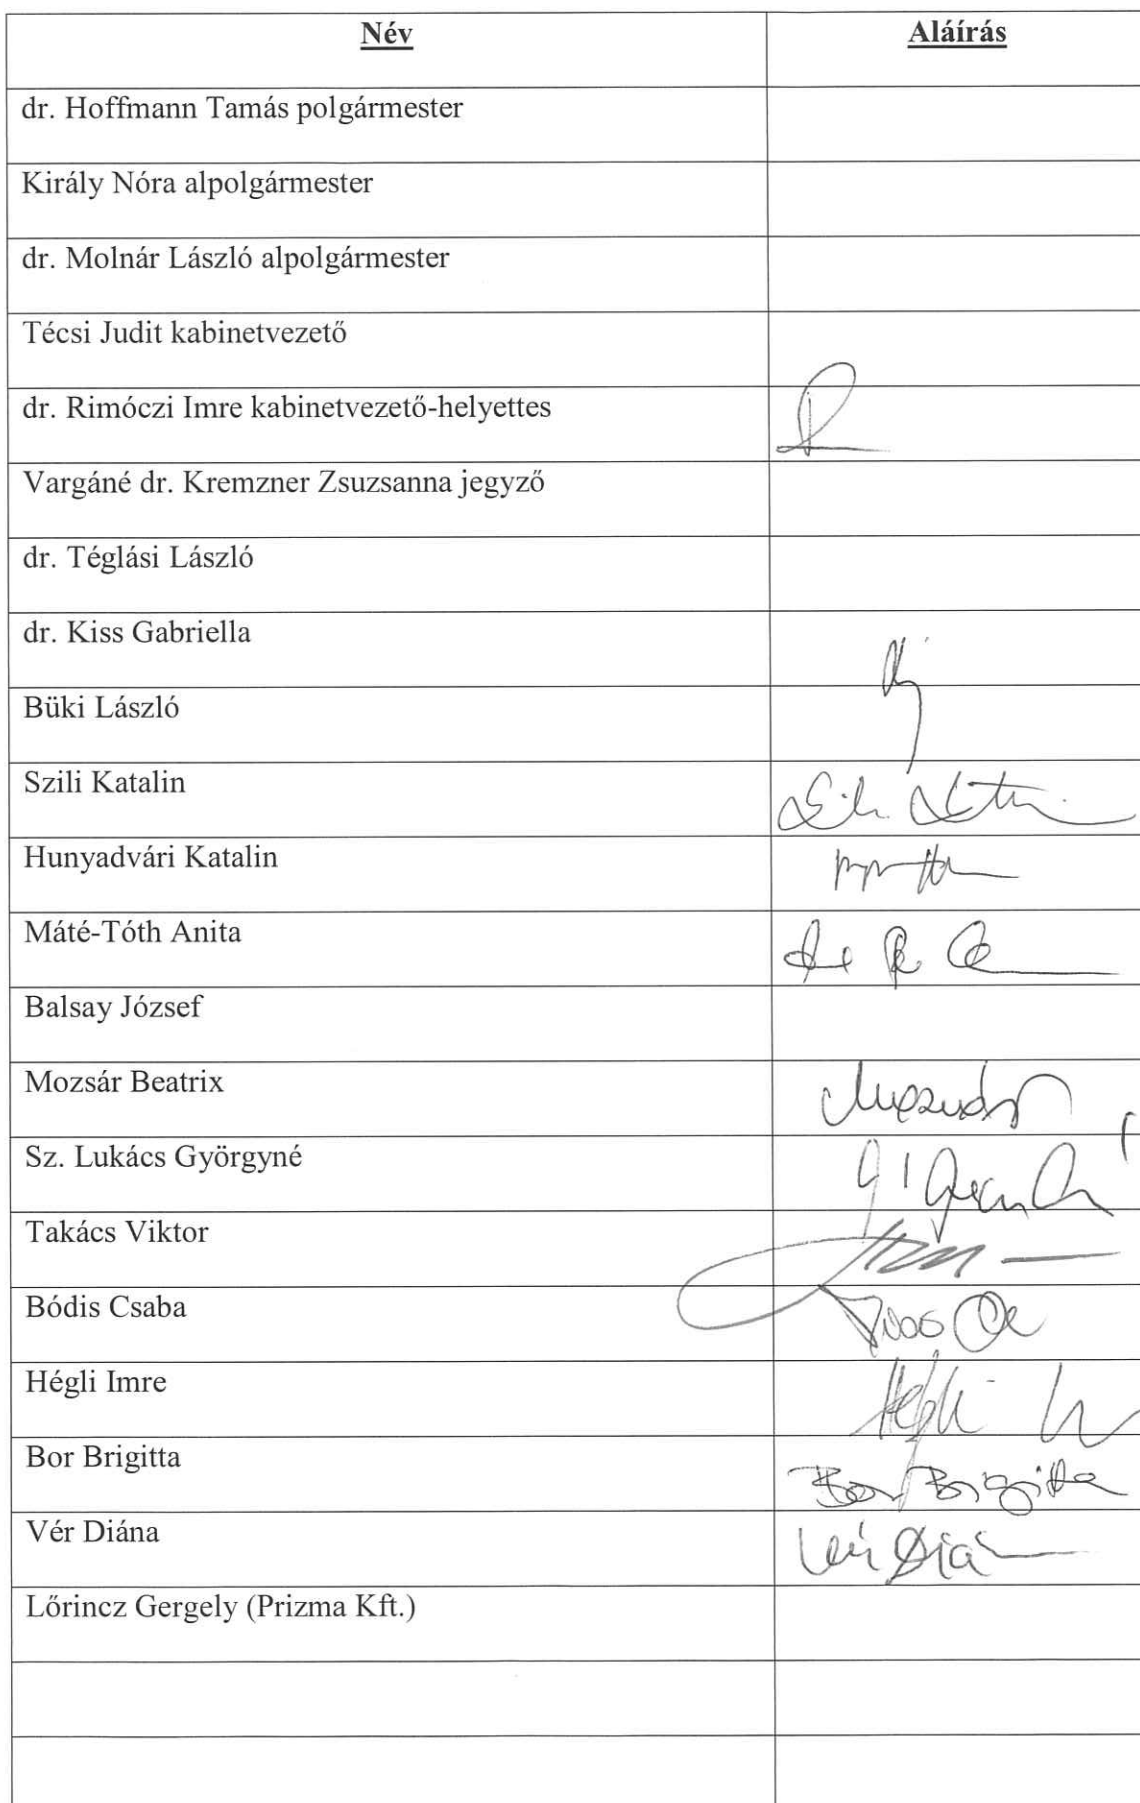 Név Aláírás
dr. Hoffmann Tamás polgármester
Király Nóra alpolgármester
dr. Molnár László alpolgármester
Técsi Judit kabinetvezető
dr. Rimóczi Imre kabinetvezető-helyettes
Vargáné dr. Kremzner Zsuzsanna jegyző
dr. Téglási László
dr. Kiss Gabriella
Büki László
Szili Katalin
Hunyadvári Katalin
Máté-Tóth Anita
Balsay József
Mozsár Beatrix
Sz. Lukács Györgyné
Takács Viktor
Bódis Csaba
Hégli Imre Hégli
Bor Brigitta Bor Brigitta
Vér Diána Vér Diá
Lőrincz Gergely (Prizma Kft.)